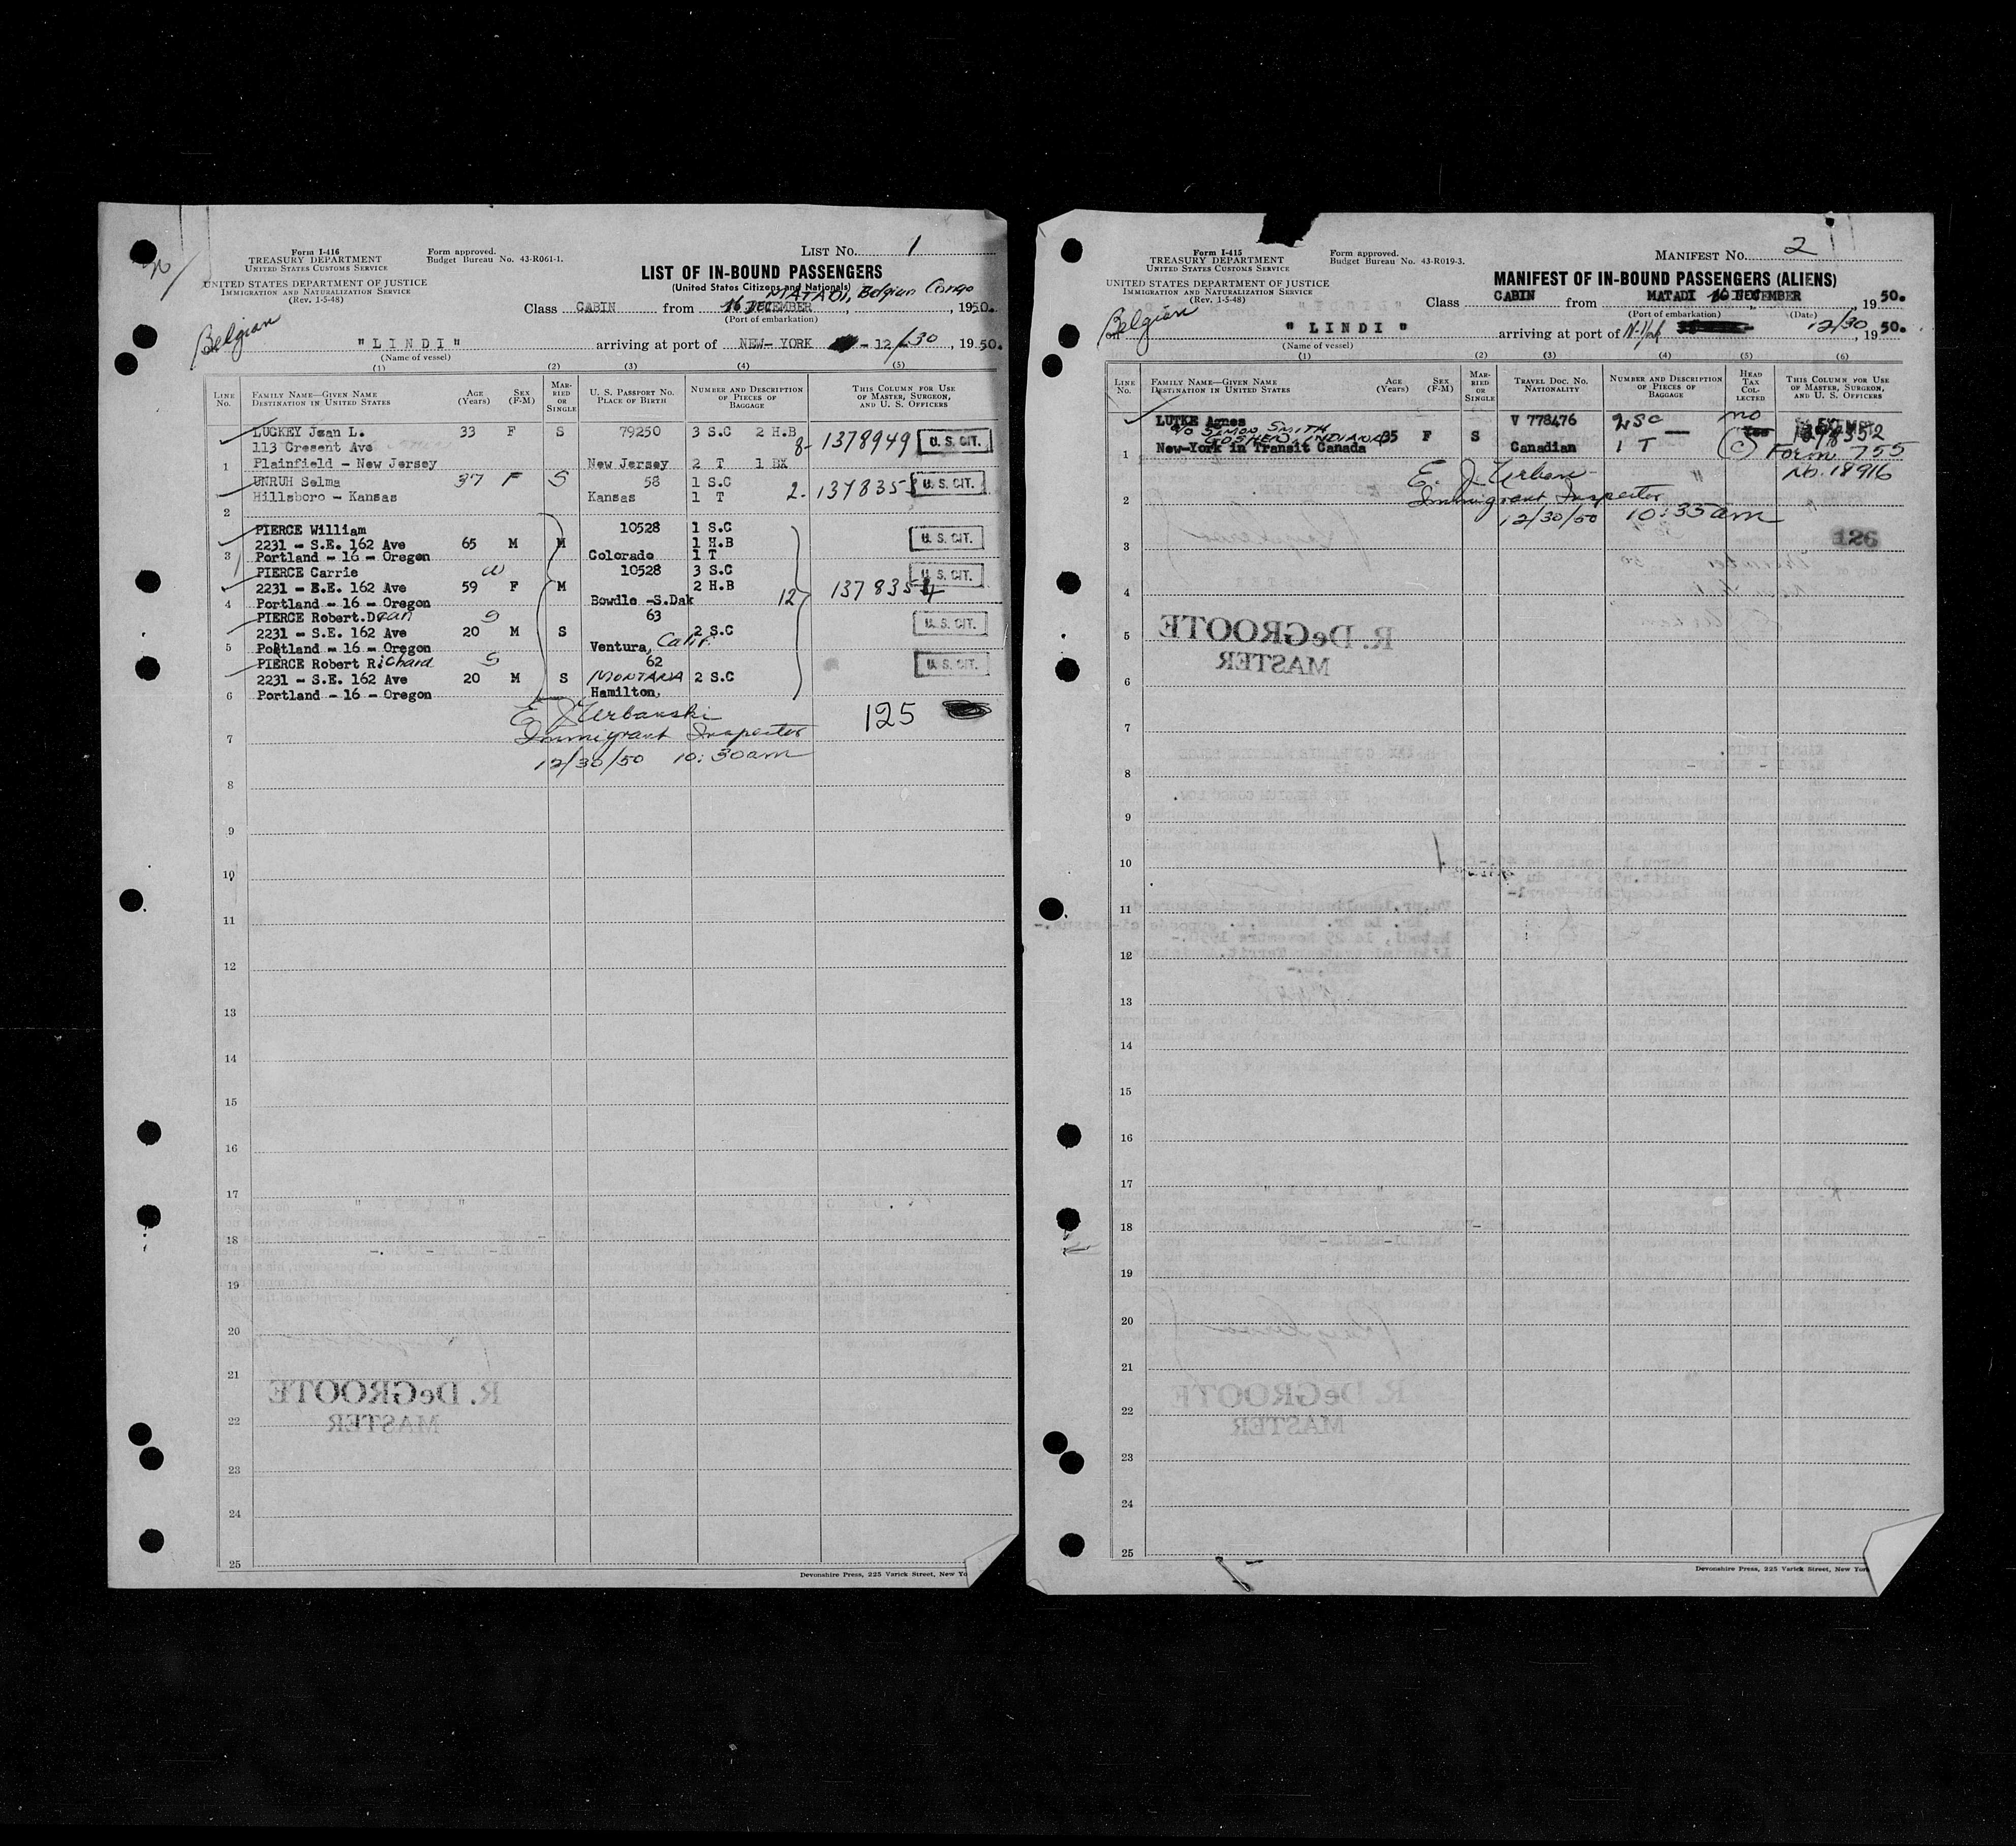 Form I-416
TREASURY DEPARTMENT
UNITED STATES CUSTOMS SERVICE
Form approved.
Budget Bureau No. 43-R061-1.
LIST No. 1
UNITED STATES DEPARTMENT OF JUSTICE
IMMIGRATION AND NATURALIZATION SERVICE
(Rev. 1-5-48)
LIST OF IN-BOUND PASSENGERS
(United States Citizens and Nationals)
MATADI, Belgian Congo
Class CABIN from 16 DECEMBER, 1950.
(Port of embarkation)
Belgian
" LINDI "
arriving at port of NEW-YORK - 12/30, 1950.
(Name of vessel)
(1) (2) (3) (4) (5)
LINE No.
FAMILY NAME—GIVEN NAME
DESTINATION IN UNITED STATES
AGE (Years)
SEX (F-M)
MARRIED OR SINGLE
U. S. PASSPORT NO.
PLACE OF BIRTH
NUMBER AND DESCRIPTION OF PIECES OF BAGGAGE
THIS COLUMN FOR USE OF MASTER, SURGEON, AND U. S. OFFICERS
LUCKEY Jean L. 33 F S 79250 3 S.C 2 H.B
113 Cresent Ave 8- 1378949 U. S. CIT.
1 Plainfield - New Jersey New Jersey 2 T 1 BX
UNRUH Selma 37 F S 58 1 S.C
Hillsboro - Kansas Kansas 1 T 2- 137835 U. S. CIT.
2
PIERCE William 10528 1 S.C
2231 - S.E. 162 Ave 65 M M 1 H.B U. S. CIT.
3 Portland - 16 - Oregon Colorado 1 T
PIERCE Carrie W 10528 3 S.C U. S. CIT.
2231 - S.E. 162 Ave 59 F M 2 H.B
4 Portland - 16 - Oregon Bowdle -S.Dak 12 1378354
PIERCE Robert.Dean S 63 U. S. CIT.
2231 - S.E. 162 Ave 20 M S 2 S.C
5 Portland - 16 - Oregon Ventura, Calif.
PIERCE Robert Richard S 62 U. S. CIT.
2231 - S.E. 162 Ave 20 M S MONTANA 2 S.C
6 Portland - 16 - Oregon Hamilton,
E J Urbanski 125
7 Immigrant Inspector
12/30/50 10:30am
8
9
10
11
12
13
14
15
16
17
18
19
20
21
R. DeGROOTE
22 MASTER
23
24
25
Devonshire Press, 225 Varick Street, New Yo
Form I-415
TREASURY DEPARTMENT
UNITED STATES CUSTOMS SERVICE
Form approved.
Budget Bureau No. 43-R019-3.
MANIFEST No. 2
UNITED STATES DEPARTMENT OF JUSTICE
IMMIGRATION AND NATURALIZATION SERVICE
(Rev. 1-5-48)
MANIFEST OF IN-BOUND PASSENGERS (ALIENS)
Class CABIN from MATADI 16 DECEMBER, 1950.
(Port of embarkation) (Date)
Belgian
on " LINDI " arriving at port of 12/30, 1950.
(Name of vessel)
(1) (2) (3) (4) (5) (6)
LINE No.
FAMILY NAME—GIVEN NAME
DESTINATION IN UNITED STATES
AGE (Years)
SEX (F-M)
MARRIED OR SINGLE
TRAVEL DOC. NO.
NATIONALITY
NUMBER AND DESCRIPTION OF PIECES OF BAGGAGE
HEAD TAX COLLECTED
THIS COLUMN FOR USE OF MASTER, SURGEON, AND U. S. OFFICERS
LUTKE Agnes V 778476 2 SC no
c/o SIMON SMITH
GOSHEN, INDIANA 35 F S
1 New-York in Transit Canada Canadian 1 T (C) Form 755
No. 18916
E. J. Urban
2 Immigrant Inspector
12/30/50 10:35am
3 126
4
5 R. DeGROOTE
MASTER
6
7
8
9
10
11
12
13
14
15
16
17
18
19
20
21
R. DeGROOTE
22 MASTER
23
24
25
Devonshire Press, 225 Varick Street, New York